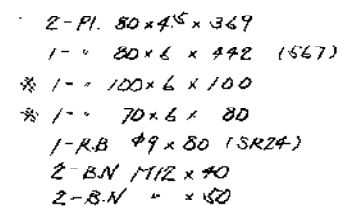 2-Pl. 80×4.5×369
1- " 80×6×442 (567)
※ 1- " 100×6×100
※ 1- " 70×6× 80
1-R.B φ9×80 (SR24)
2-B.N M12×40
2-B.N " ×50